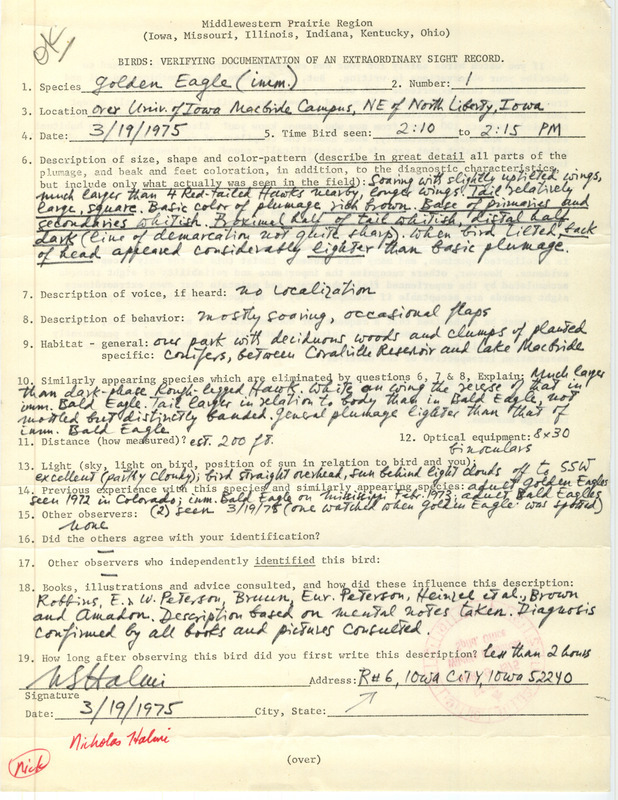 Middlewestern Prairie Region
(Iowa, Missouri, Illinois, Indiana, Kentucky, Ohio)
OK/
BIRDS: VERIFYING DOCUMENTATION OF AN EXTRAORDINARY SIGHT RECORD.
1. Species Golden Eagle (imm.) 2. Number: 1
3. Location over Univ. of Iowa Macbride Campus, NE of North Liberty, Iowa
4. Date: 3/19/1975 5. Time Bird seen: 2:10 to 2:15 PM
6. Description of size, shape and color-pattern (describe in great detail all parts of the
plumage, and beak and feet coloration, in addition, to the diagnostic characteristics,
but include only what actually was seen in the field): Soaring with slightly uptilted wings,
much larger than 4 Red-tailed Hawks nearby, longer wings. Tail relatively
large, square. Basic color of plumage rich brown. Base of primaries and
secondaries whitish. Proximal half of tail whitish, distal half
dark (line of demarcation not quite sharp). When bird tilted, back
of head appeared considerably lighter than basic plumage.
7. Description of voice, if heard: no localization
8. Description of behavior: mostly soaring, occasional flaps
9. Habitat - general: our park with deciduous woods and clumps of planted
specific: conifers, between Coralville Reservoir and Lake MacBride
10. Similarly appearing species which are eliminated by questions 6, 7 & 8, Explain: Much larger
than dark-phase Rough-legged Hawk. White on wing the reverse of that in
imm. Bald Eagle. Tail larger in relation to body than in Bald Eagle, not
mottled but distinctly banded. General plumage lighter than that of
imm. Bald Eagle
11. Distance (how measured)? est. 200 ft. 12. Optical equipment: 8x30
binoculars
13. Light (sky, light on bird, position of sun in relation to bird and you):
excellent (partly cloudy); bird straight overhead, sun behind light clouds off to SSW
14. Previous experience with this species and similarly appearing species: adult Golden Eagles
seen 1972 in Colorado; imm. Bald Eagle on Mississippi Febr. 1973; adult Bald Eagles
15. Other observers: (2) seen 3/19/75 (one watched when Golden Eagle was spotted)
none
16. Did the others agree with your identification?
—
17. Other observers who independently identified this bird:
—
18. Books, illustrations and advice consulted, and how did these influence this description:
Robbins, E. & W. Peterson, Bruun, Eur. Peterson, Heinzel et al., Brown
and Amadon. Description based on mental notes taken. Diagnosis
confirmed by all books and pictures consulted.
19. How long after observing this bird did you first write this description? less than 2 hours
NSHalmi Address: R#6, Iowa City, Iowa 52240
Signature
Date: 3/19/1975 City, State:
Nicholas Halmi
Nick
(over)